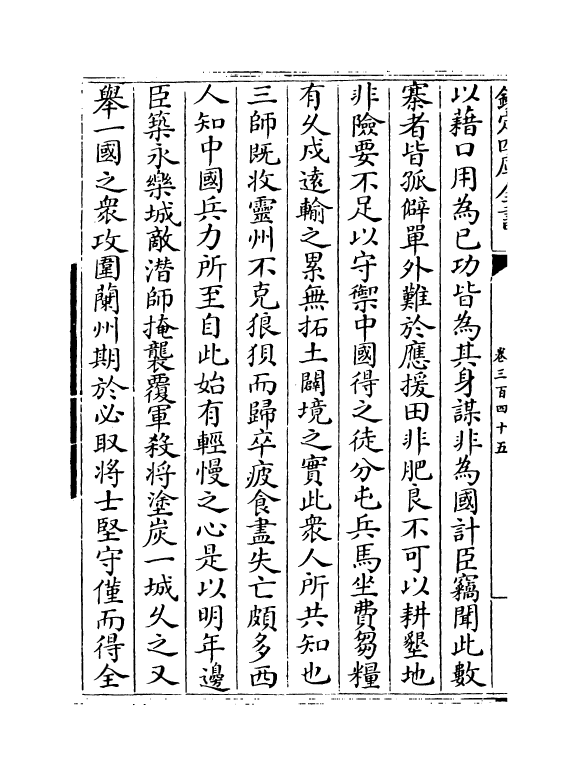 欽定四庫全書
卷三百四十五
以藉口用為已功皆為其身謀非為國計臣竊聞此數
寨者皆孤僻單外難於應援田非肥良不可以耕墾地
非險要不足以守禦中國得之徒分屯兵馬坐費芻糧
有久戍遠輸之累無拓土闢境之實此衆人所共知也
三師既收靈州不克狼狽而歸卒疲食盡失亡頗多西
人知中國兵力所至自此始有輕慢之心是以明年邊
臣築永樂城敵潛師掩襲覆軍殺将塗炭一城久之又
舉一國之衆攻圍蘭州期於必取将士堅守僅而得全